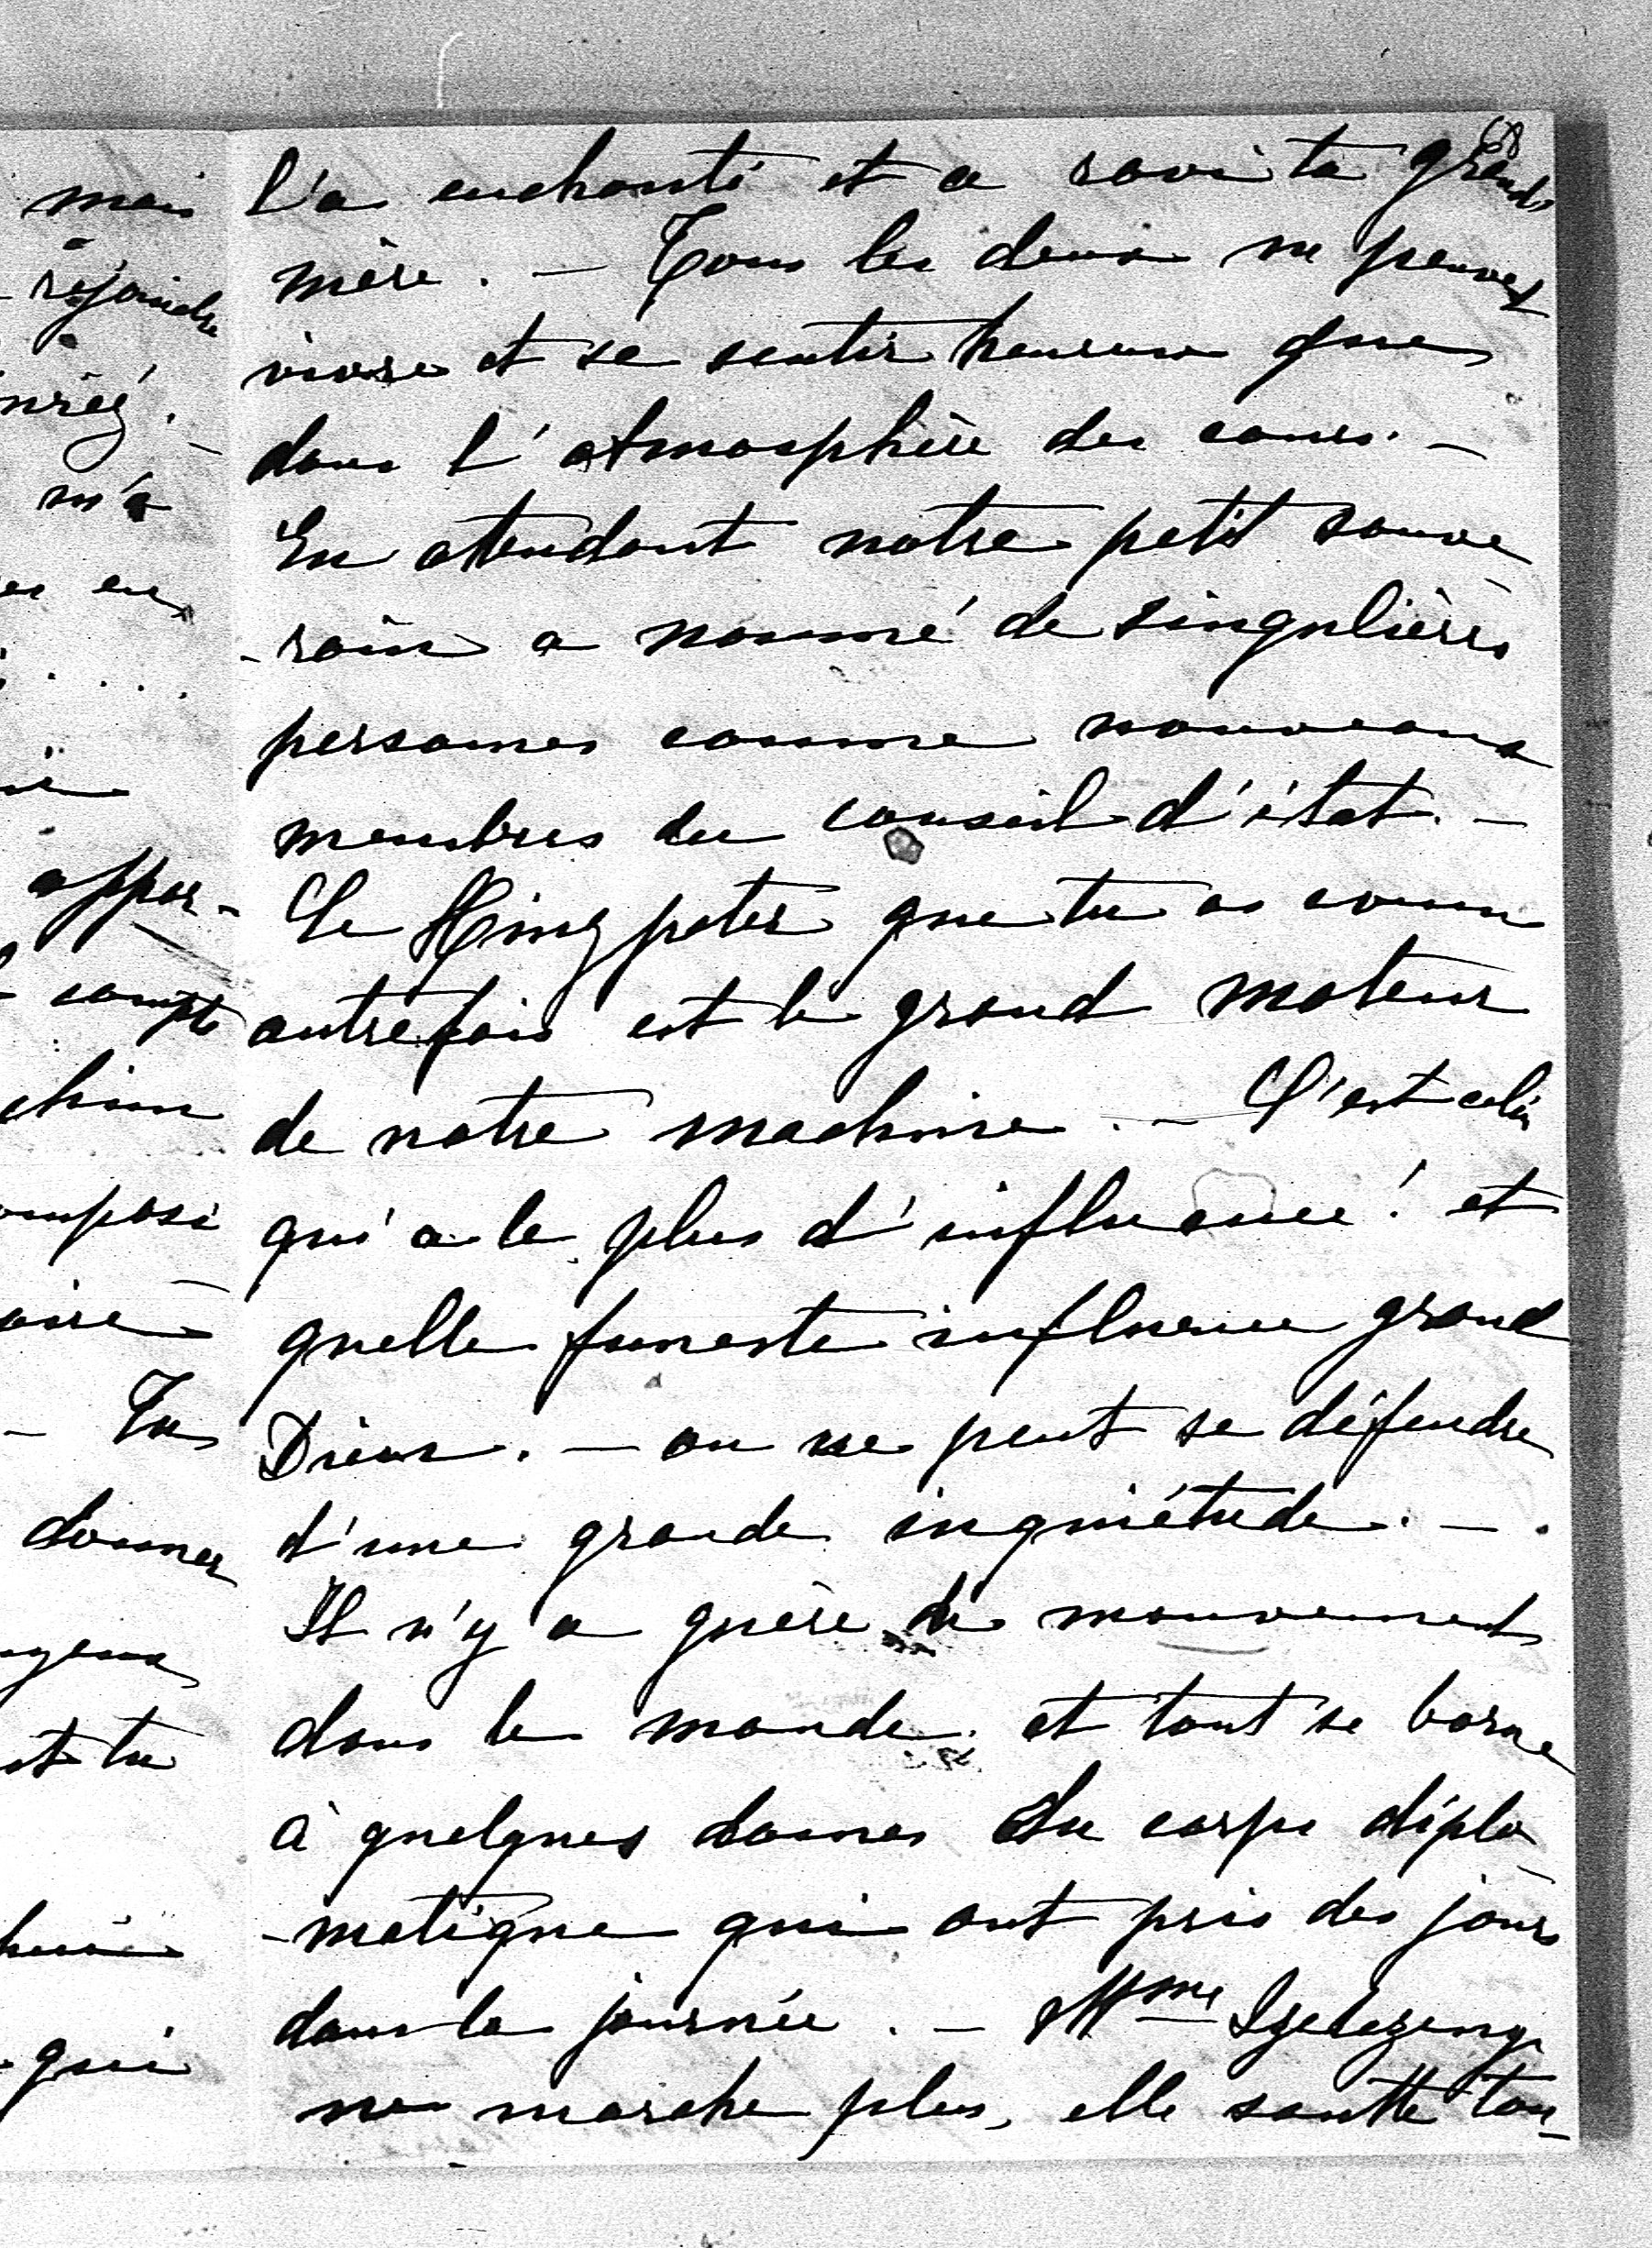 l'a enchanté et a ravi ta grand
mère. — Tous les deux ne peuvent
vivre et se sentir heureux que
dans l'atmosphère des cours. —
En attendant notre petit souve
-rain a nommé de singulières
personnes comme nouveaux
membres du conseil d'état. —
Le Hinzpeter que tu as connu
autrefois est le grand moteur
de notre machine. — C'est celui
qui a le plus d'influence! et
quelle funeste influence grand
Dieu. — on ne peut se défendre
d'une grande inquiétude. —
Il n'y a guère de mouvement
dans le monde et tout se borne
à quelques dames du corps diplo
-matique qui ont pris des jours
dans la journée. — Mme
ne marche plus, elle sautte tou-
mais
rejoindre
m'a
en
appar-
compte
donner
et tu
qui